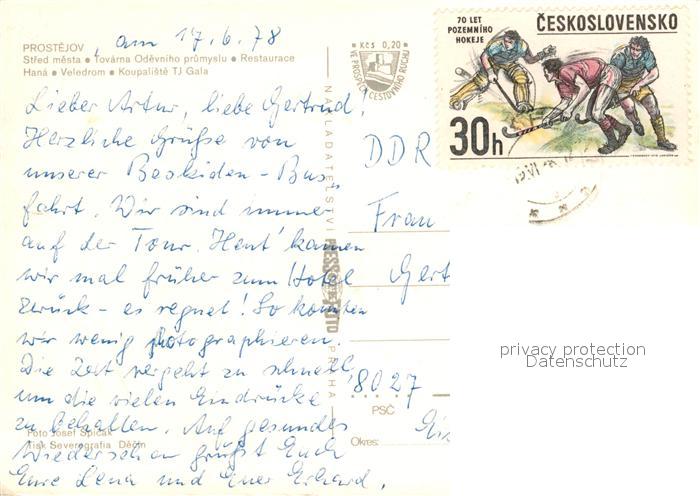 PROSTĚJOV, am 17.6.78
Střed města ■ Továrna Oděvního průmyslu ■ Restaurace
Haná ■ Veledrom ■ Koupaliště TJ Gala
Kčs 0,20
VE PROSPĚCH CESTOVNÍHO RUCHU
70 LET
POZEMNÍHO
HOKEJE
ČESKOSLOVENSKO
30h
Lieber Artur, liebe Gertrud!
Herzliche Grüße von
unserer Beskiden-Bus-
fahrt. Wir sind immer
auf der Tour. Heut' kamen
wir mal früher zum Hotel
zurück - es regnet! So konnten
wir wenig photographieren.
Die Zeit vergeht zu schnell,
um die vielen Eindrücke
zu behalten. Auf gesundes
Wiedersehen grüßt Euch
Eure Lena und Euer Erhard.
Foto Josef Špičák
Tisk Severografia Děčín
NAKLADATELSTVÍ PRESSFOTO PRAHA
DDR
Frau
Gert
8027
PSČ
Okres:
privacy protection
Datenschutz